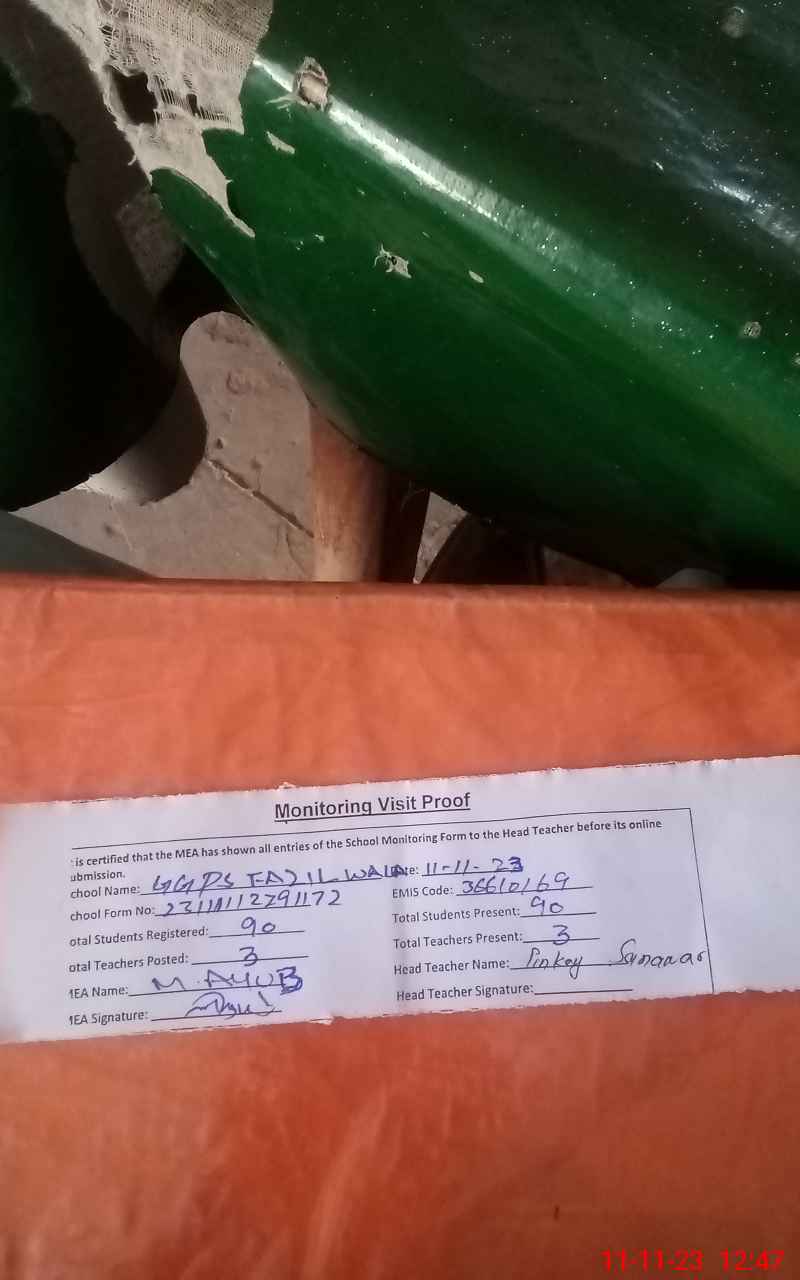 Monitoring Visit Proof
is certified that the MEA has shown all entries of the School Monitoring Form to the Head Teacher before its online
ubmission.
chool Name: GGPS FAZIL WALA te: 11-11-23
chool Form No: EMIS Code: 36610169
otal Students Registered: 90 Total Students Present: 90
otal Teachers Posted: 3 Total Teachers Present: 3
MEA Name: M. AYUB Head Teacher Name: Pinkey
MEA Signature: Head Teacher Signature:
11-11-23 12:47